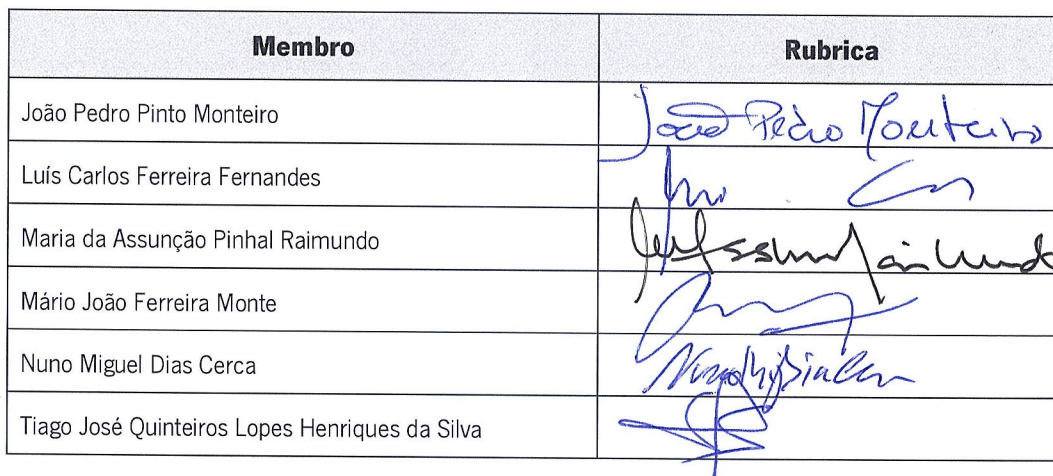 Membro Rubrica
João Pedro Pinto Monteiro João Pedro Monteiro
Luís Carlos Ferreira Fernandes
Maria da Assunção Pinhal Raimundo
Mário João Ferreira Monte
Nuno Miguel Dias Cerca
Tiago José Quinteiros Lopes Henriques da Silva